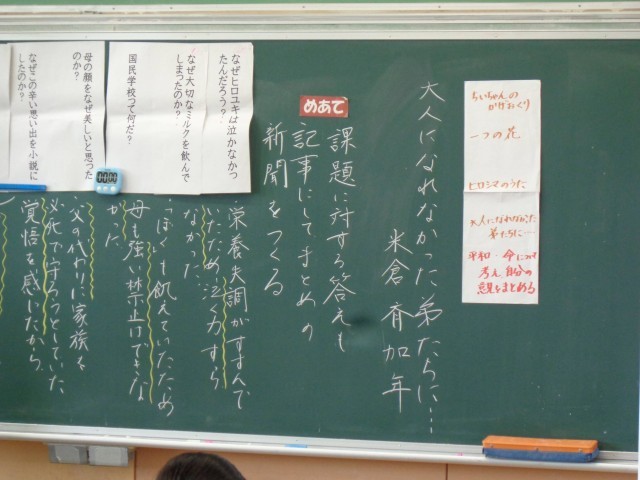 ちいちゃんの
かげおくり
一つの花
ヒロシマのうた
大人になれなかった
弟たちに…
平和・命について
考え自分の
意見をまとめる
大人になれなかった弟たちに…
米倉斉加年
めあて
課題に対する答えを
記事にしてまとめの
新聞をつくる
なぜヒロユキは泣かなかっ
たんだろう?
なぜ大切なミルクを飲んで
しまったのか?
国民学校って何だ?
母の顔をなぜ美しいと思った
のか?
なぜこの辛い思い出を小説に
したのか?
00:00
・栄養失調がすすんで
いたため泣く力すら
なかった
・「ぼく」も飢えていたため
母も強い禁止はできな
かった
・父の代わりに家族を
必死で守ろうとしていた
覚悟を感じたから